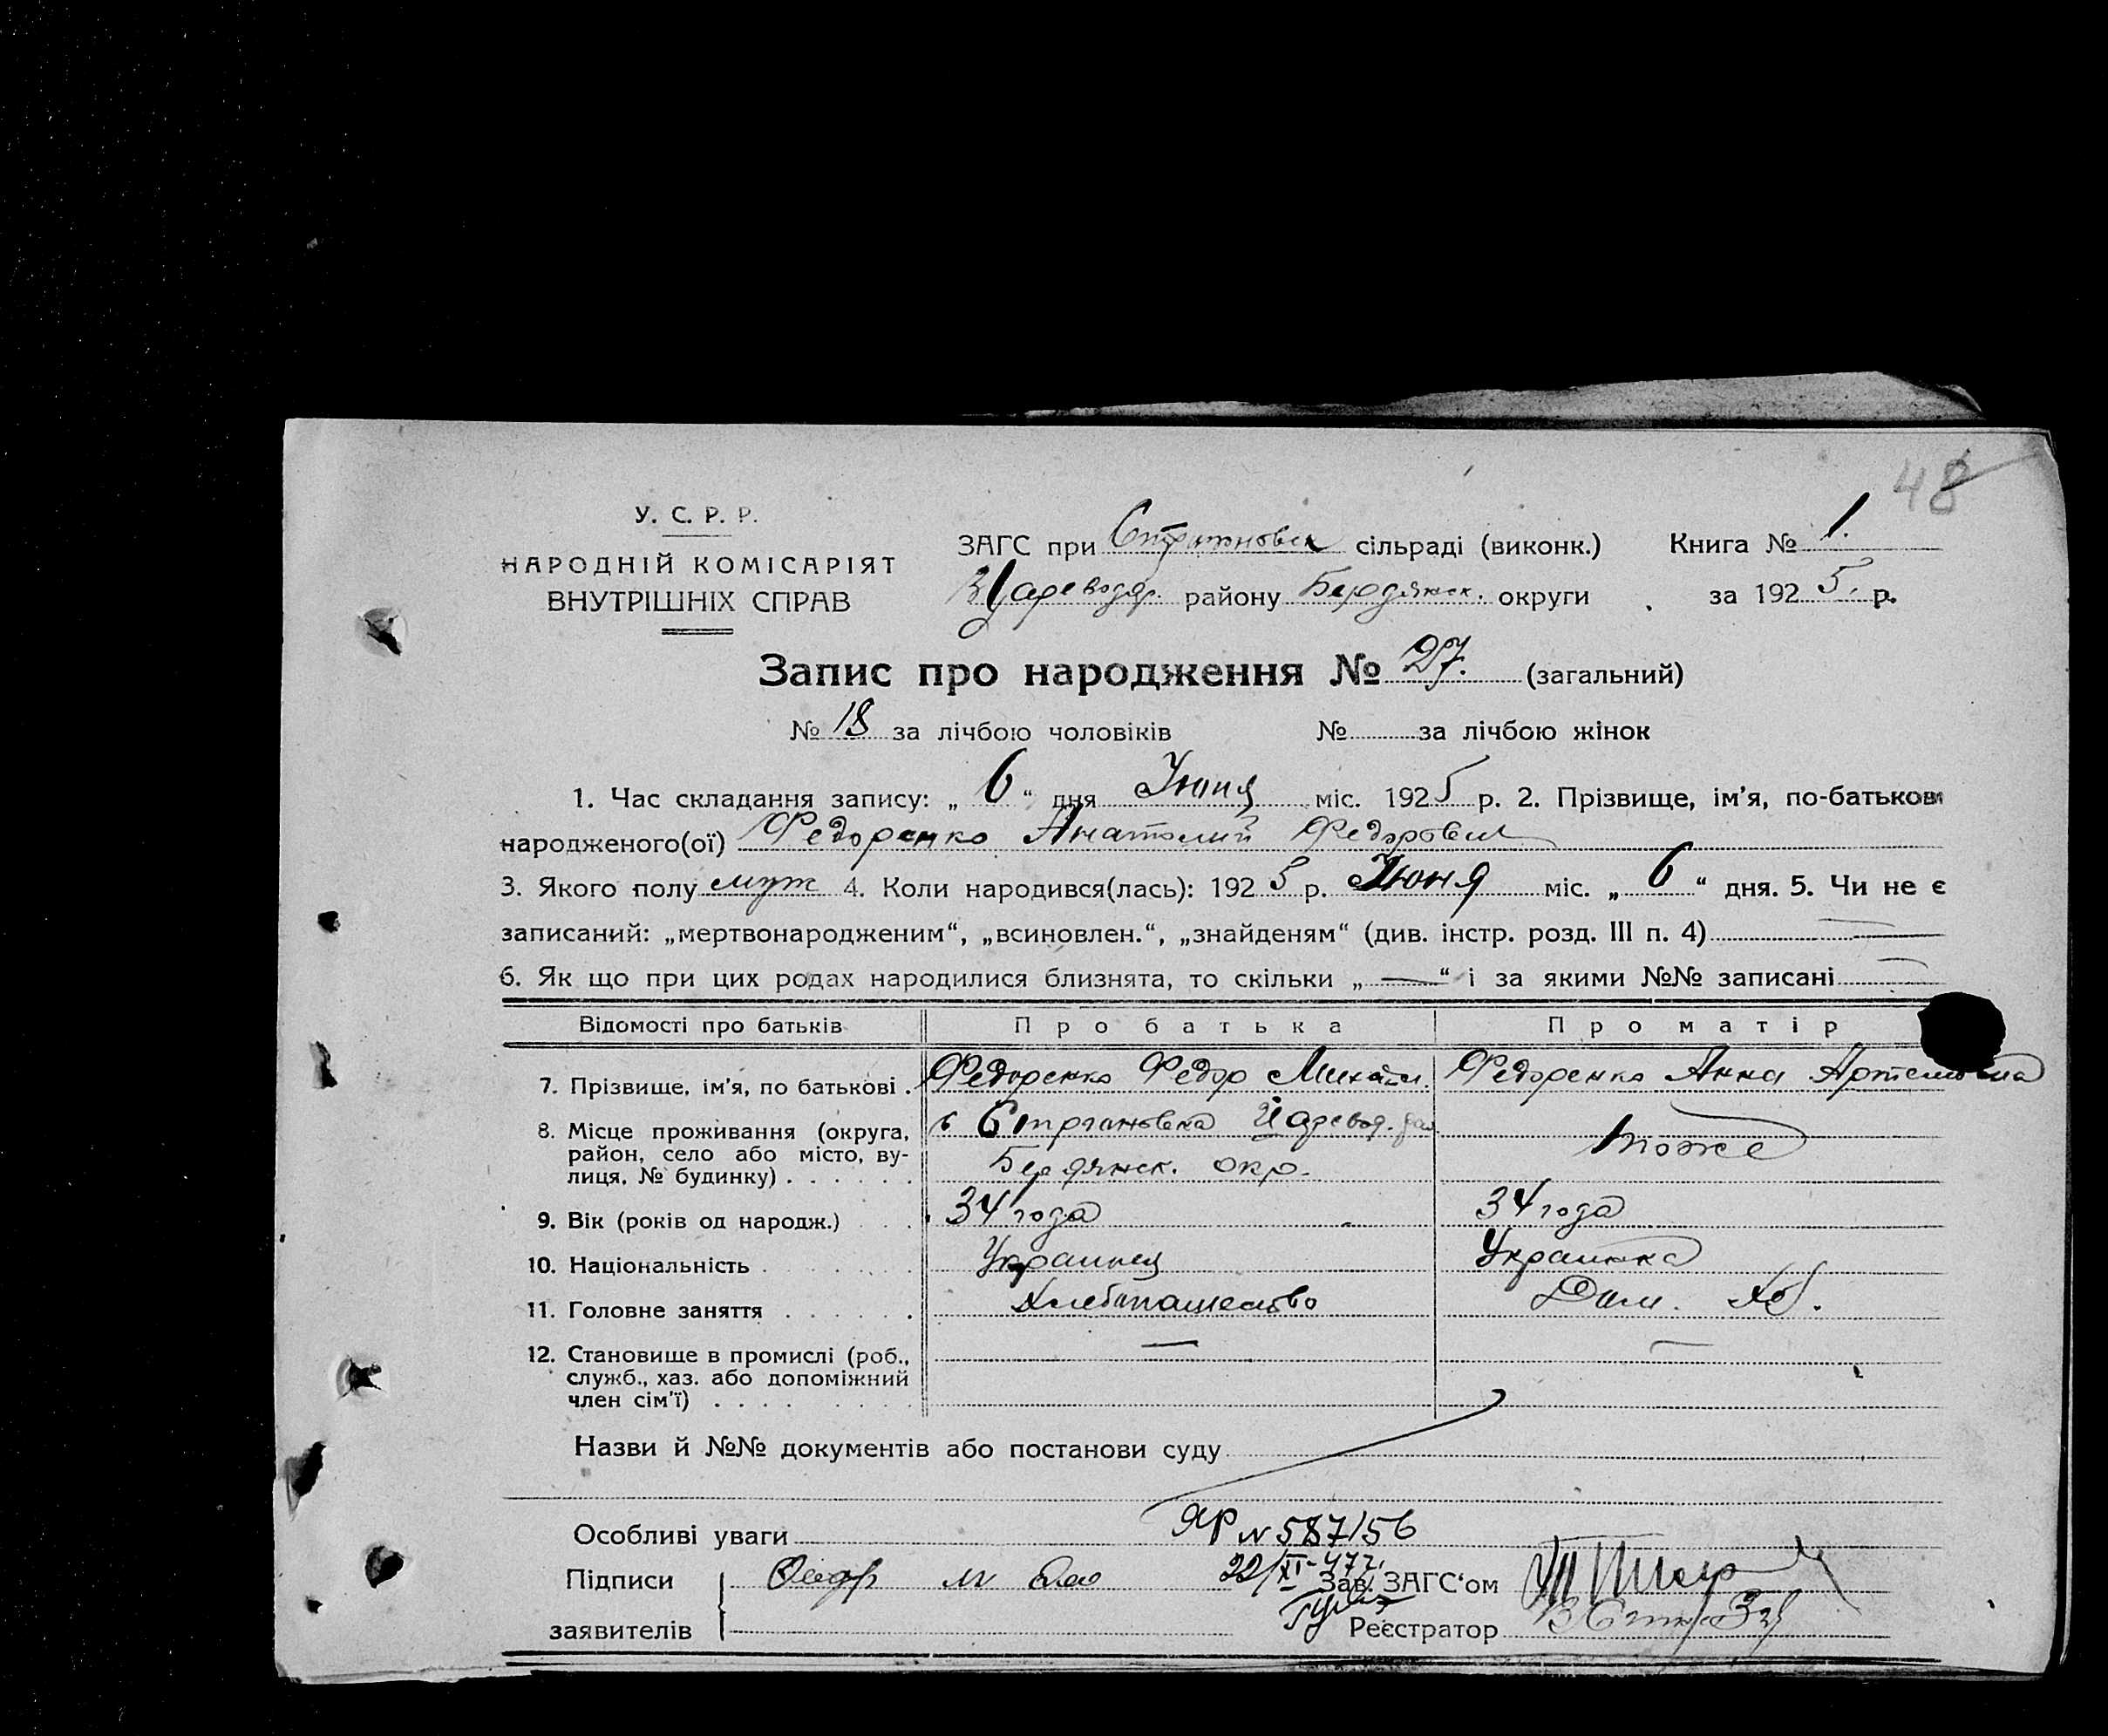 48
У. С. Р. Р.
НАРОДНІЙ КОМІСАРІЯТ
ВНУТРІШНІХ СПРАВ
ЗАГС при Строгановск сільраді (виконк.) Книга № 1.
Цареводар. району Бердянск. округи за 1925. р.
Запис про народження № 27. (загальний)
№ 18 за лічбою чоловіків № за лічбою жінок
1. Час складання запису: „ 6 “ дня Июня міс. 1925 р. 2. Прізвище, ім’я, по-батькові
народженого(ої) Федоренко Анатолий Федорович
3. Якого полу муж 4. Коли народився(лась): 1925 р. Июня міс. „ 6 “ дня. 5. Чи не є
записаний: „мертвонародженим“, „всиновлен.“, „знайденям“ (див. інстр. розд. III п. 4) —
6. Як що при цих родах народилися близнята, то скільки „ — “ і за якими №№ записані —
Відомості про батьків Про батька Про матір
7. Прізвище, ім’я, по батькові . Федоренко Федор Михайл. Федоренко Анна Артемовна
8. Місце проживання (округа, район, село або місто, вулиця, № будинку) . . . . . . с Строгановка Царевод. рай. Бердянск. окр. тоже
9. Вік (років од народж.) . . . 34 года 34 года
10. Національність . . . . . . . Украинец Украинка
11. Головне заняття . . . . . . Хлебопашество Дом. Хоз.
12. Становище в промислі (роб., служб., хаз. або допоміжний член сім’ї) . . . . . . . . . — —
Назви й №№ документів або постанови суду
Особливі уваги ЯР № 587156
22/XI-47г.
Підписи Зав. ЗАГС‘ом
заявителів Реєстратор